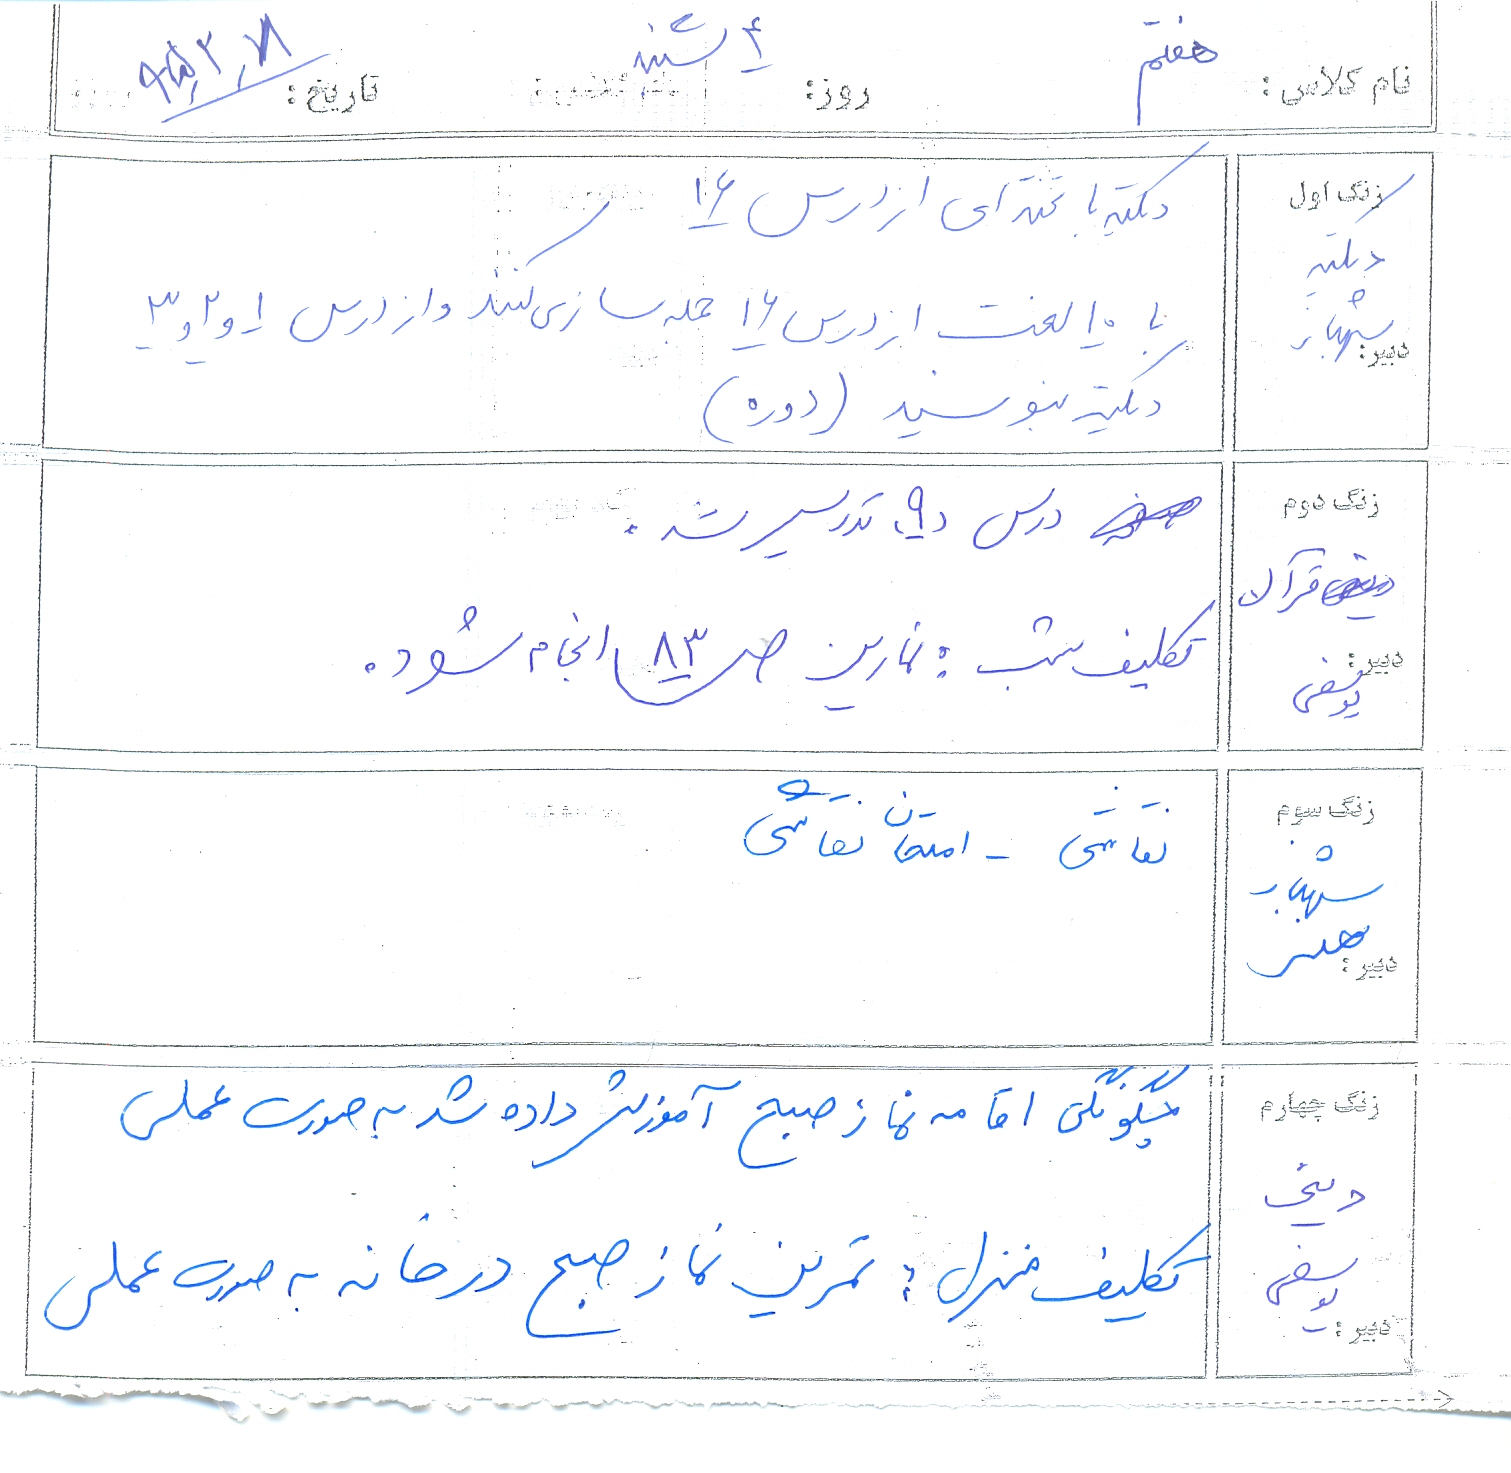 نام کلاس: هفتم روز: ۴ شنبه تاریخ:
زنگ اول
دیکته
شهباز
دبیر:
دیکته پا تخته ای از درس ۱۶
با ۱۰ لغت از درس ۱۶ جمله سازی کنند و از درس ۱ و ۲ و ۳
دیکته بنویسند (دوره)
زنگ دوم
قرآن
دبیر:
یوسفی
درس ۹ تدریس شد.
تکلیف شب: تمارین ص ۸۳ انجام شود.
زنگ سوم
شهباز
هنر
دبیر:
نقاشی - امتحان نقاشی
زنگ چهارم
دینی
یوسفی
دبیر:
چگونگی اقامه نماز صبح آموزش داده شد به صورت عملی
تکلیف منزل: تمرین نماز صبح در خانه به صورت عملی